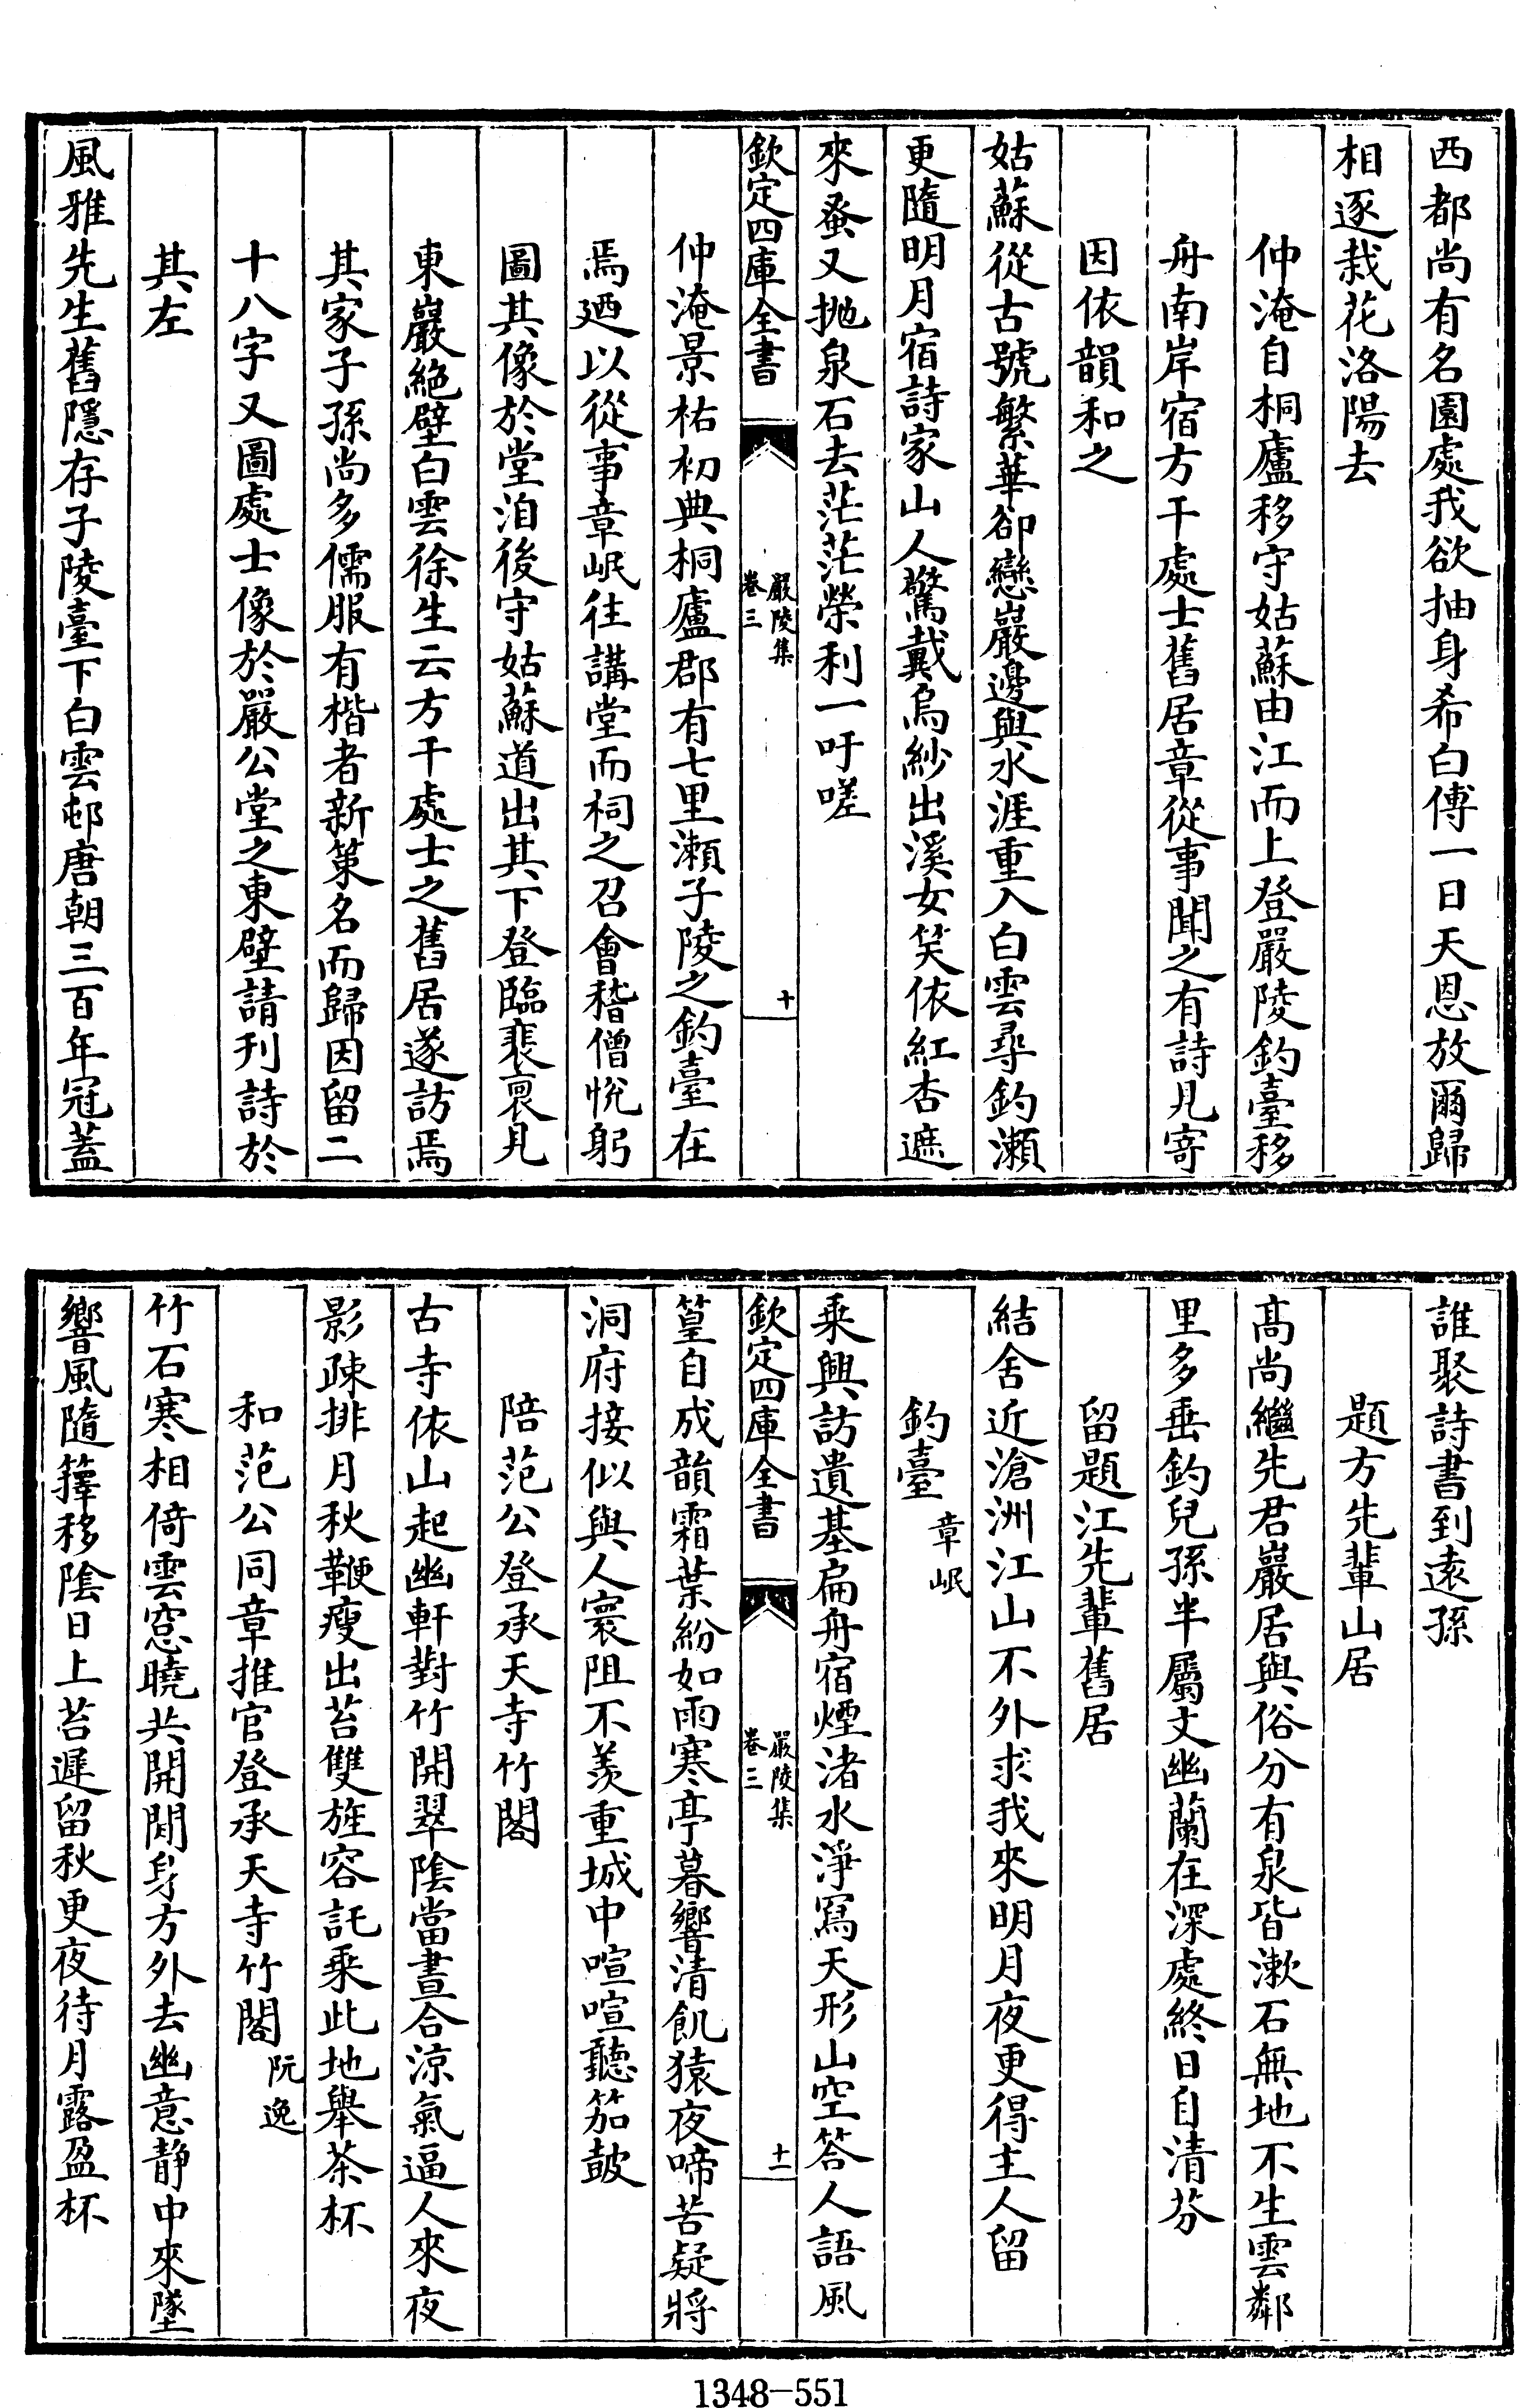 西都尚有名園處我欲抽身希白傅一日天恩放爾歸
相逐栽花洛陽去
仲淹自桐廬移守姑蘇由江而上登嚴陵釣臺移
舟南岸宿方干處士舊居章從事聞之有詩見寄
因依韻和之
姑蘇從古號繁華卻戀巖邊與水涯重入白雲尋釣瀨
更隨明月宿詩家山人驚戴烏紗出溪女笑依紅杏遮
來蚤又拋泉石去茫茫榮利一吁嗟
欽定四庫全書
嚴陵集
卷三
十
仲淹景祐初典桐廬郡有七里瀨子陵之釣臺在
焉廼以從事章岷往講堂而祠之召會稽僧悅躬
圖其像於堂洎後守姑蘇道出其下登臨裴裒見
東巖絕壁白雲徐生云方干處士之舊居遂訪焉
其家子孫尚多儒服有楷者新策名而歸因留二
十八字又圖處士像於嚴公堂之東壁請刋詩於
其左
風雅先生舊隱存子陵臺下白雲邨唐朝三百年冠蓋
誰聚詩書到遠孫
題方先輩山居
髙尚繼先君巖居與俗分有泉皆漱石無地不生雲鄰
里多垂釣兒孫半屬文幽蘭在深處終日自清芬
留題江先輩舊居
結舍近滄洲江山不外求我來明月夜更得主人留
釣臺 章岷
乘興訪遺基扁舟宿煙渚水淨寫天形山空答人語風
欽定四庫全書
嚴陵集
卷三
十一
篁自成韻霜葉紛如雨寒亭暮響清飢猿夜啼苦疑將
洞府接似與人寰阻不羨重城中喧喧聽笳皷
陪范公登承天寺竹閣
古寺依山起幽軒對竹開翠陰當晝合涼氣逼人來夜
影疎排月秋鞭瘦出苔雙旌容託乘此地舉茶杯
和范公同章推官登承天寺竹閣 阮逸
竹石寒相倚雲窓曉共開閒身方外去幽意靜中來墜
響風隨籜移陰日上苔遲留秋更夜待月露盈杯
1348-551